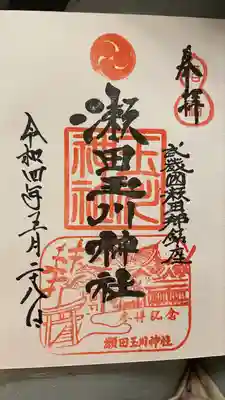 奉拝
武蔵國瀬田郷鎮座
瀬田玉川神社
令和四年五月二八日
参拝記念
瀬田玉川神社